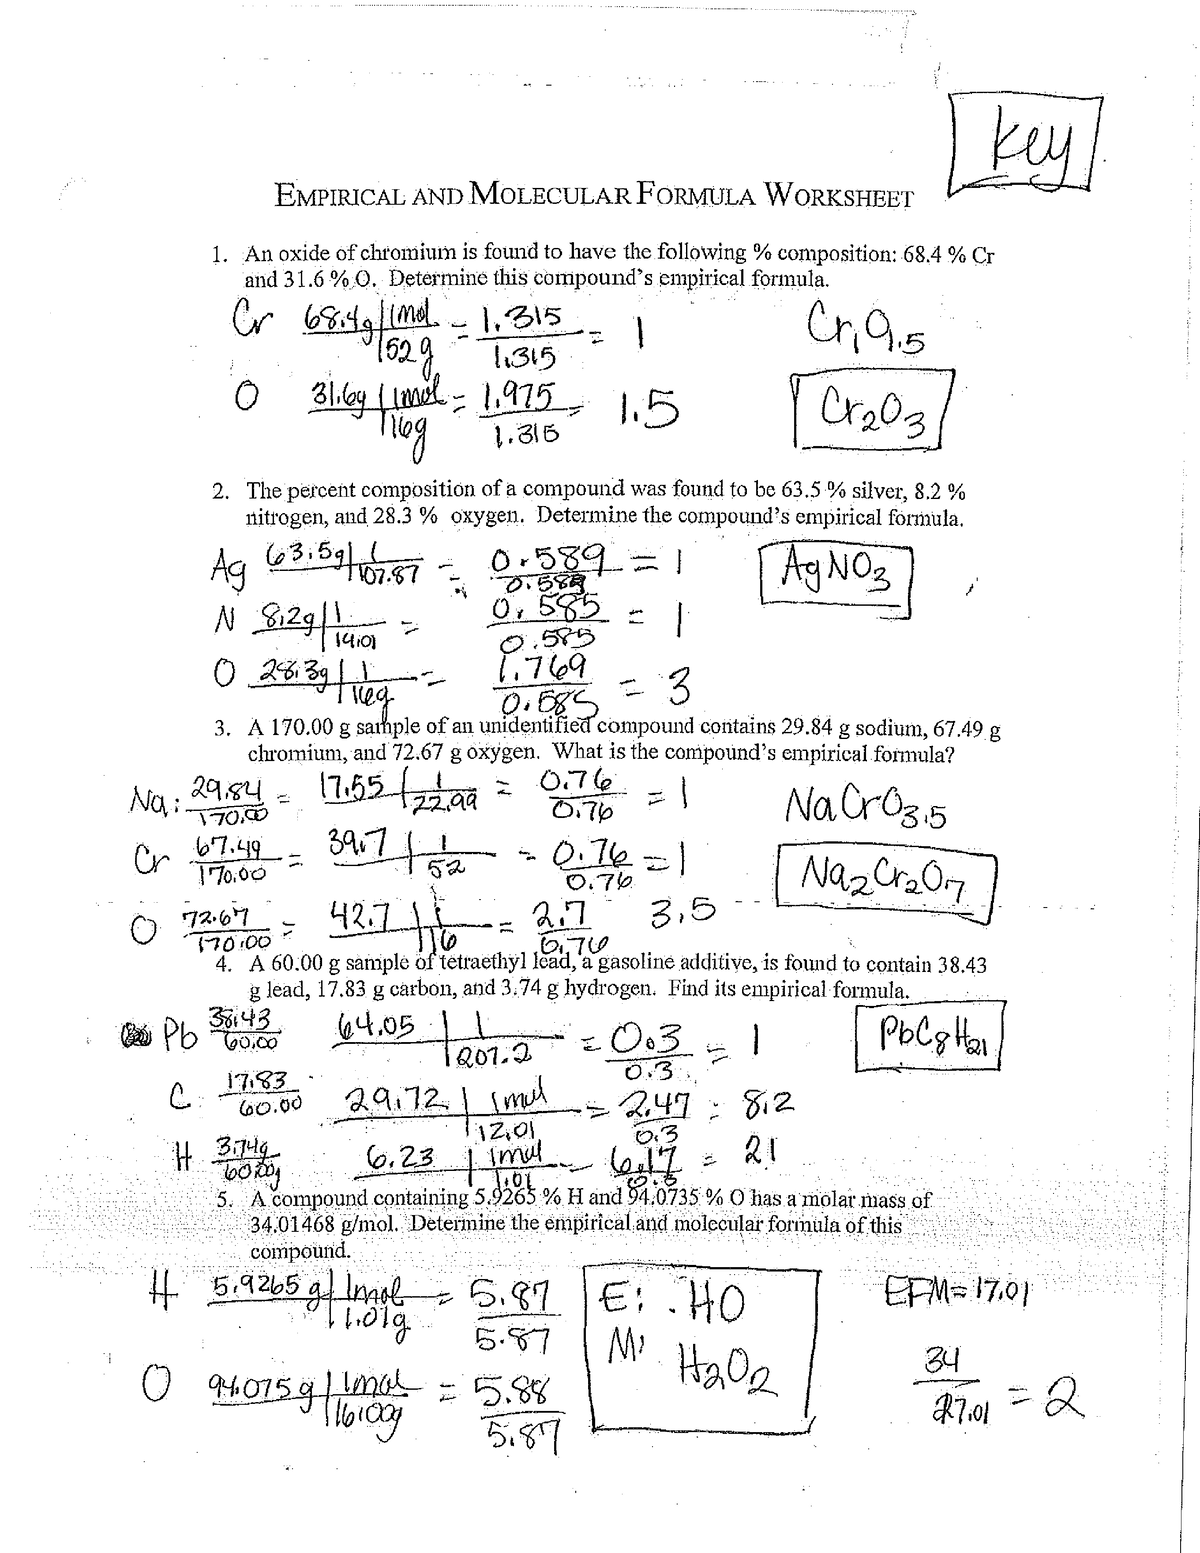 Key
EMPIRICAL AND MOLECULAR FORMULA WORKSHEET
1. An oxide of chromium is found to have the following % composition: 68.4 % Cr
and 31.6 % O. Determine this compound's empirical formula.
Cr 68.4g | 1mol / 52g = 1.315 / 1.315 = 1
Cr₁O₁.5
O 31.6g | 1mol / 16g = 1.975 / 1.315 = 1.5
Cr₂O₃
2. The percent composition of a compound was found to be 63.5 % silver, 8.2 %
nitrogen, and 28.3 % oxygen. Determine the compound's empirical formula.
Ag 63.5g | 1 / 107.87 = 0.589 / 0.589 = 1
AgNO₃
N 8.2g | 1 / 14.01 = 0.585 / 0.585 = 1
O 28.3g | 1 / 16g = 1.769 / 0.585 = 3
3. A 170.00 g sample of an unidentified compound contains 29.84 g sodium, 67.49 g
chromium, and 72.67 g oxygen. What is the compound's empirical formula?
Na: 29.84 / 170.00 = 17.55 | 1 / 22.99 = 0.76 / 0.76 = 1
NaCrO₃.5
Cr 67.49 / 170.00 = 39.7 | 1 / 52 = 0.76 / 0.76 = 1
Na₂Cr₂O₇
O 72.67 / 170.00 = 42.7 | 1 / 16 = 2.7 / 0.76 3.5
4. A 60.00 g sample of tetraethyl lead, a gasoline additive, is found to contain 38.43
g lead, 17.83 g carbon, and 3.74 g hydrogen. Find its empirical formula.
Pb 38.43 / 60.00 64.05 | 1 / 207.2 = 0.3 / 0.3 = 1
PbC₈H₂₁
C 17.83 / 60.00 29.72 | 1mol / 12.01 = 2.47 / 0.3 = 8.2
H 3.74g / 60.00g 6.23 | 1mol / 1.01 = 6.17 / 0.3 = 21
5. A compound containing 5.9265 % H and 94.0735 % O has a molar mass of
34.01468 g/mol. Determine the empirical and molecular formula of this
compound.
H 5.9265 g | 1mol / 1.01g = 5.87 / 5.87
E: HO
M: H₂O₂
EFM = 17.01
O 94.075 g | 1mol / 16.00g = 5.88 / 5.87
34 / 17.01 = 2